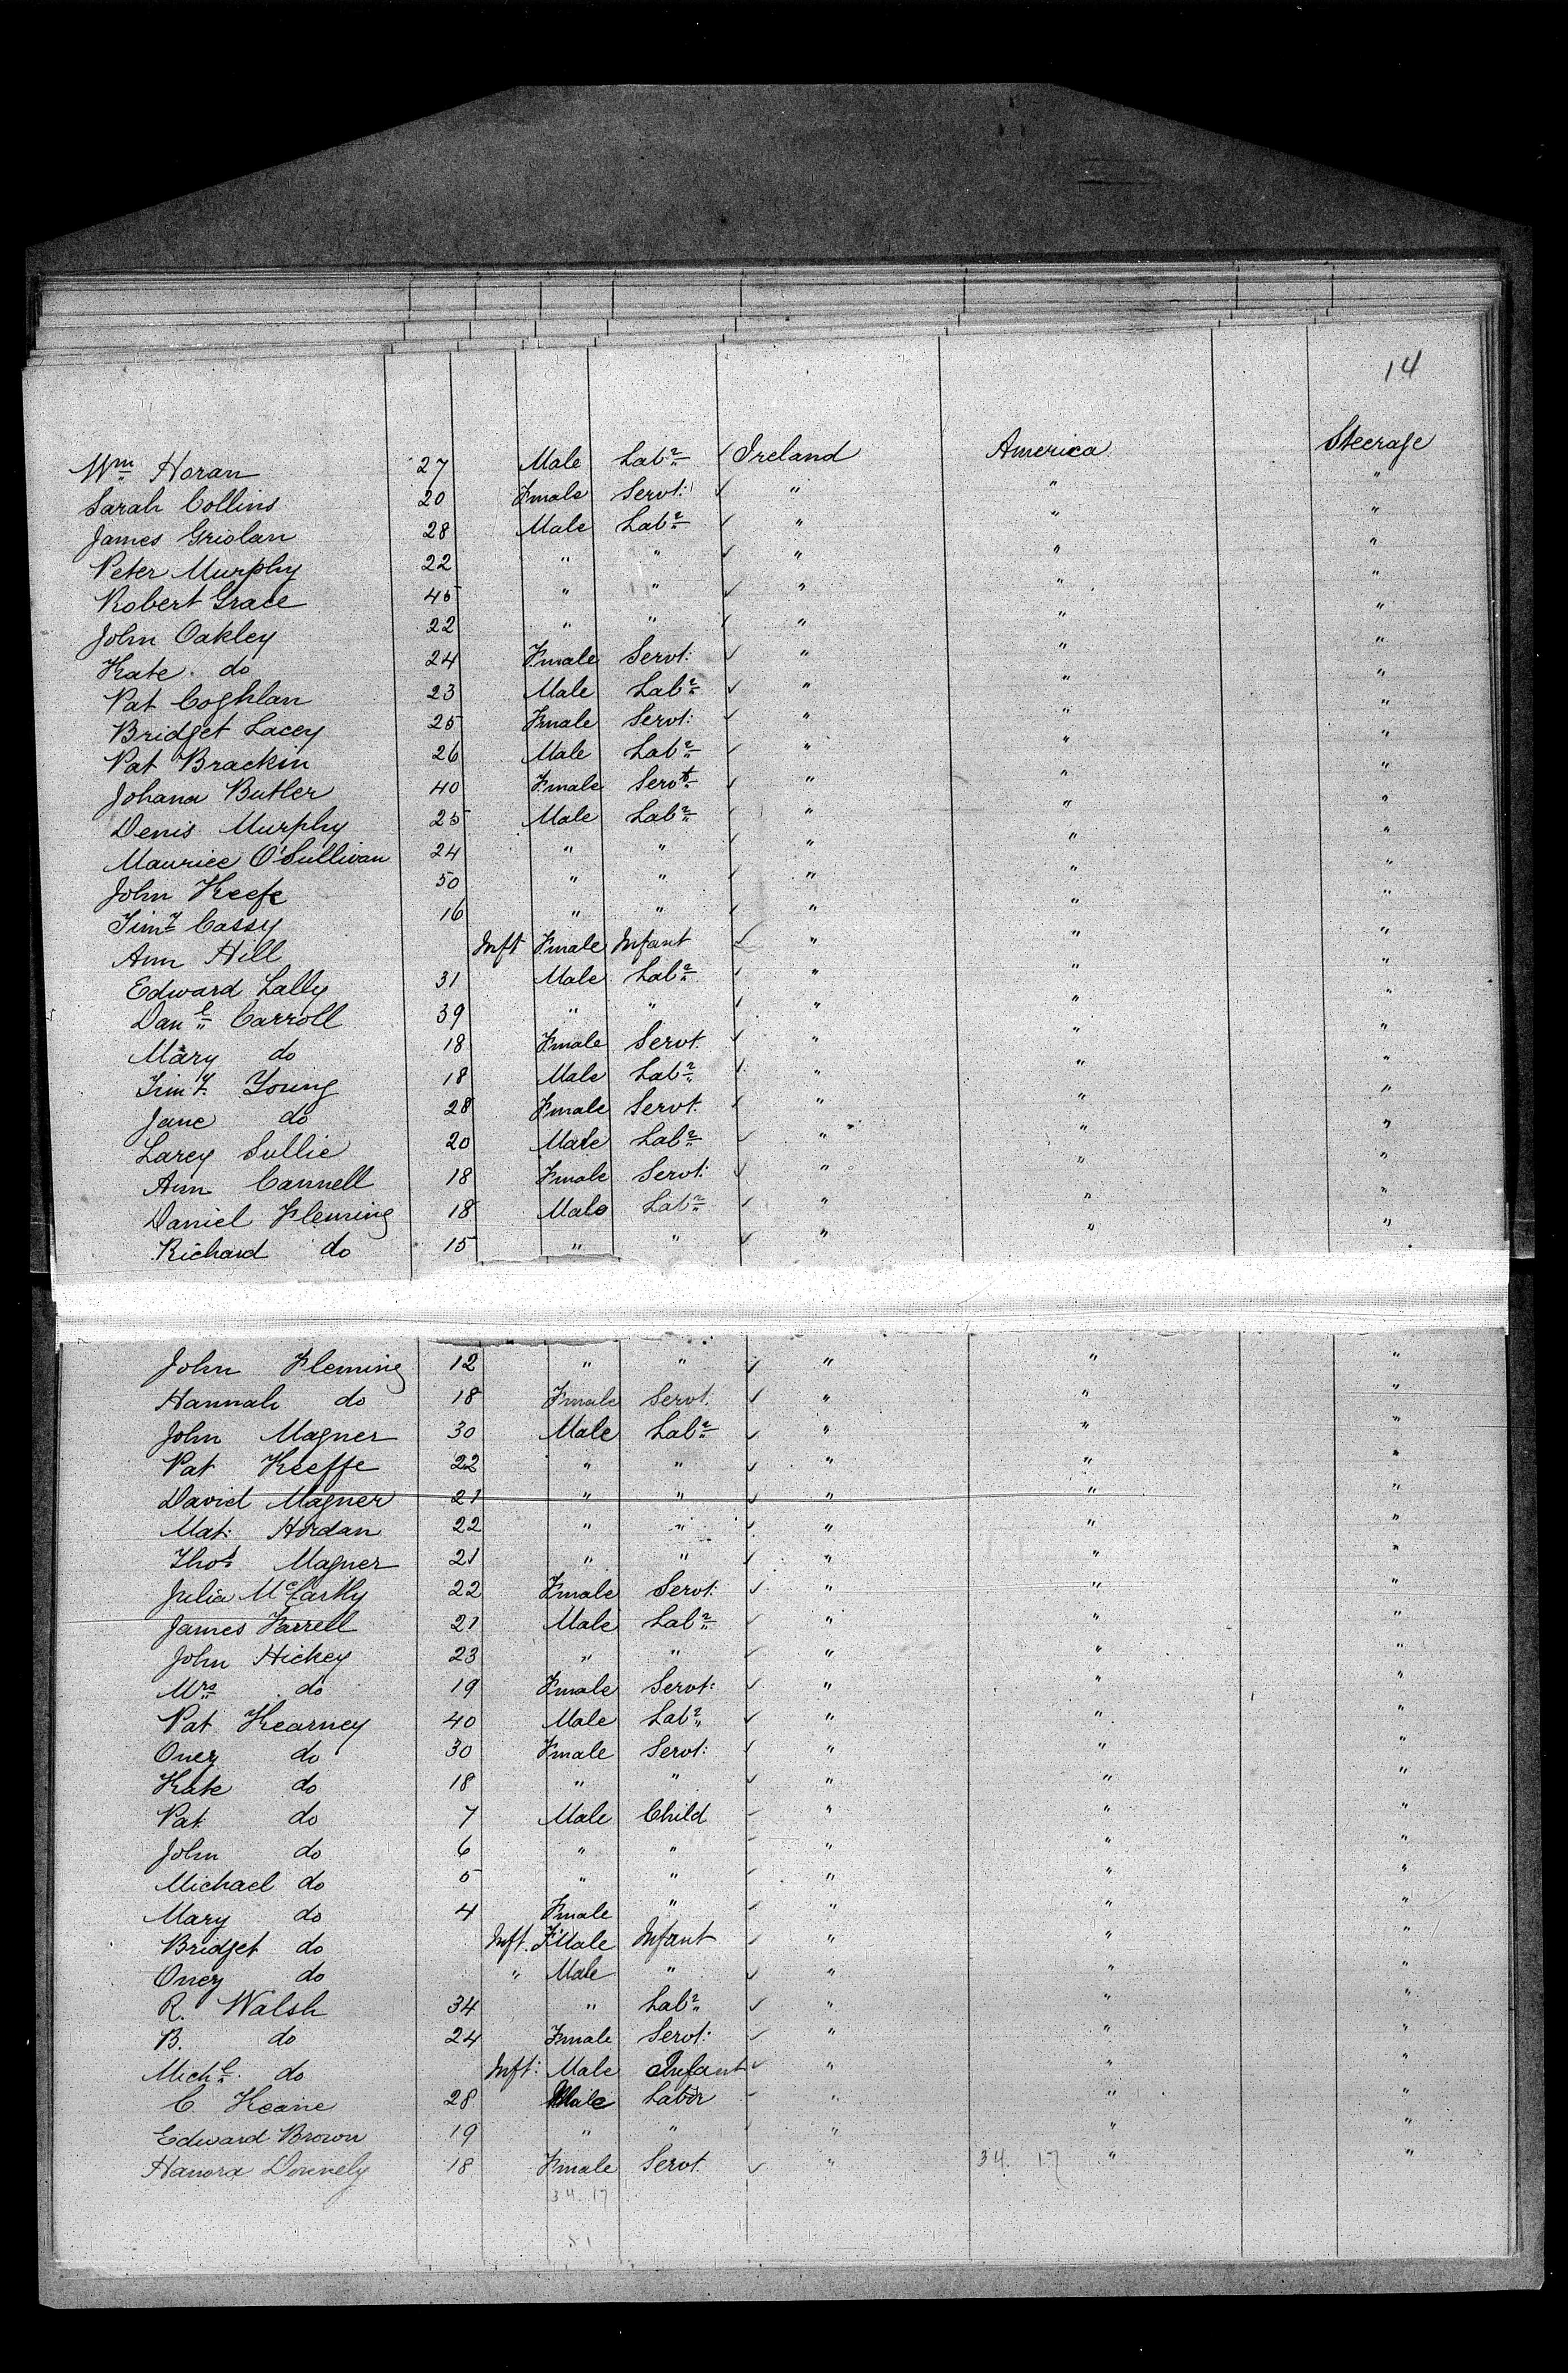 14
Wm Horan 27 Male Labr Ireland America Steerage
Sarah Collins 20 Fmale Servt: " " "
James Griolan 28 Male Labr " " "
Peter Murphy 22 " " " " "
Robert Grace 45 " " " " "
John Oakley 22 " " " " "
Kate do 24 Fmale Servt: " " "
Pat Coghlan 23 Male Labr " " "
Bridget Lacey 25 Fmale Servt: " " "
Pat Brackin 26 Male Labr " " "
Johana Butler 40 Fmale Servt " " "
Denis Murphy 25 Male Labr " " "
Maurice O'Sullivan 24 " " " " "
John Keefe 50 " " " " "
Timy Cassy 16 " " " " "
Ann Hill Inft Fmale Infant " " "
Edward Lally 31 Male Labr " " "
Danl Carroll 39 " " " " "
Mary do 18 Fmale Servt. " " "
Timy. Young 18 Male Labr " " "
Jane do 28 Fmale Servt. " " "
Larey Sullie 20 Male Labr " " "
Ann Cannell 18 Fmale Servt: " " "
Daniel Fleming 18 Male Labr " " "
Richard do 15 " " " " "
John Fleming 12 " " " " "
Hannah do 18 Fmale Servt. " " "
John Magner 30 Male Labr " " "
Pat Keeffe 22 " " " " "
David Magner 21 " " " " "
Mat: Hordan 22 " " " " "
Thos Magner 21 " " " " "
Julia McCarthy 22 Fmale Servt: " " "
James Farrell 21 Male Labr " " "
John Hickey 23 " " " " "
Mrs do 19 Fmale Servt: " " "
Pat Kearney 40 Male Labr " " "
Oney do 30 Fmale Servt: " " "
Kate do 18 " " " " "
Pat do 7 Male Child " " "
John do 6 " " " " "
Michael do 5 " " " " "
Mary do 4 Fmale " " " "
Bridget do Inft. FMale Infant " " "
Oney do " Male " " " "
R. Walsh 34 " Labr " " "
B. do 24 Fmale Servt: " " "
Michl. do Inft: Male Infant " " "
C. Keane 28 Male Labor " " "
Edward Brown 19 " " " " "
Hanora Donnely 18 Fmale Servt. " 34. 17 " "
34. 17
51